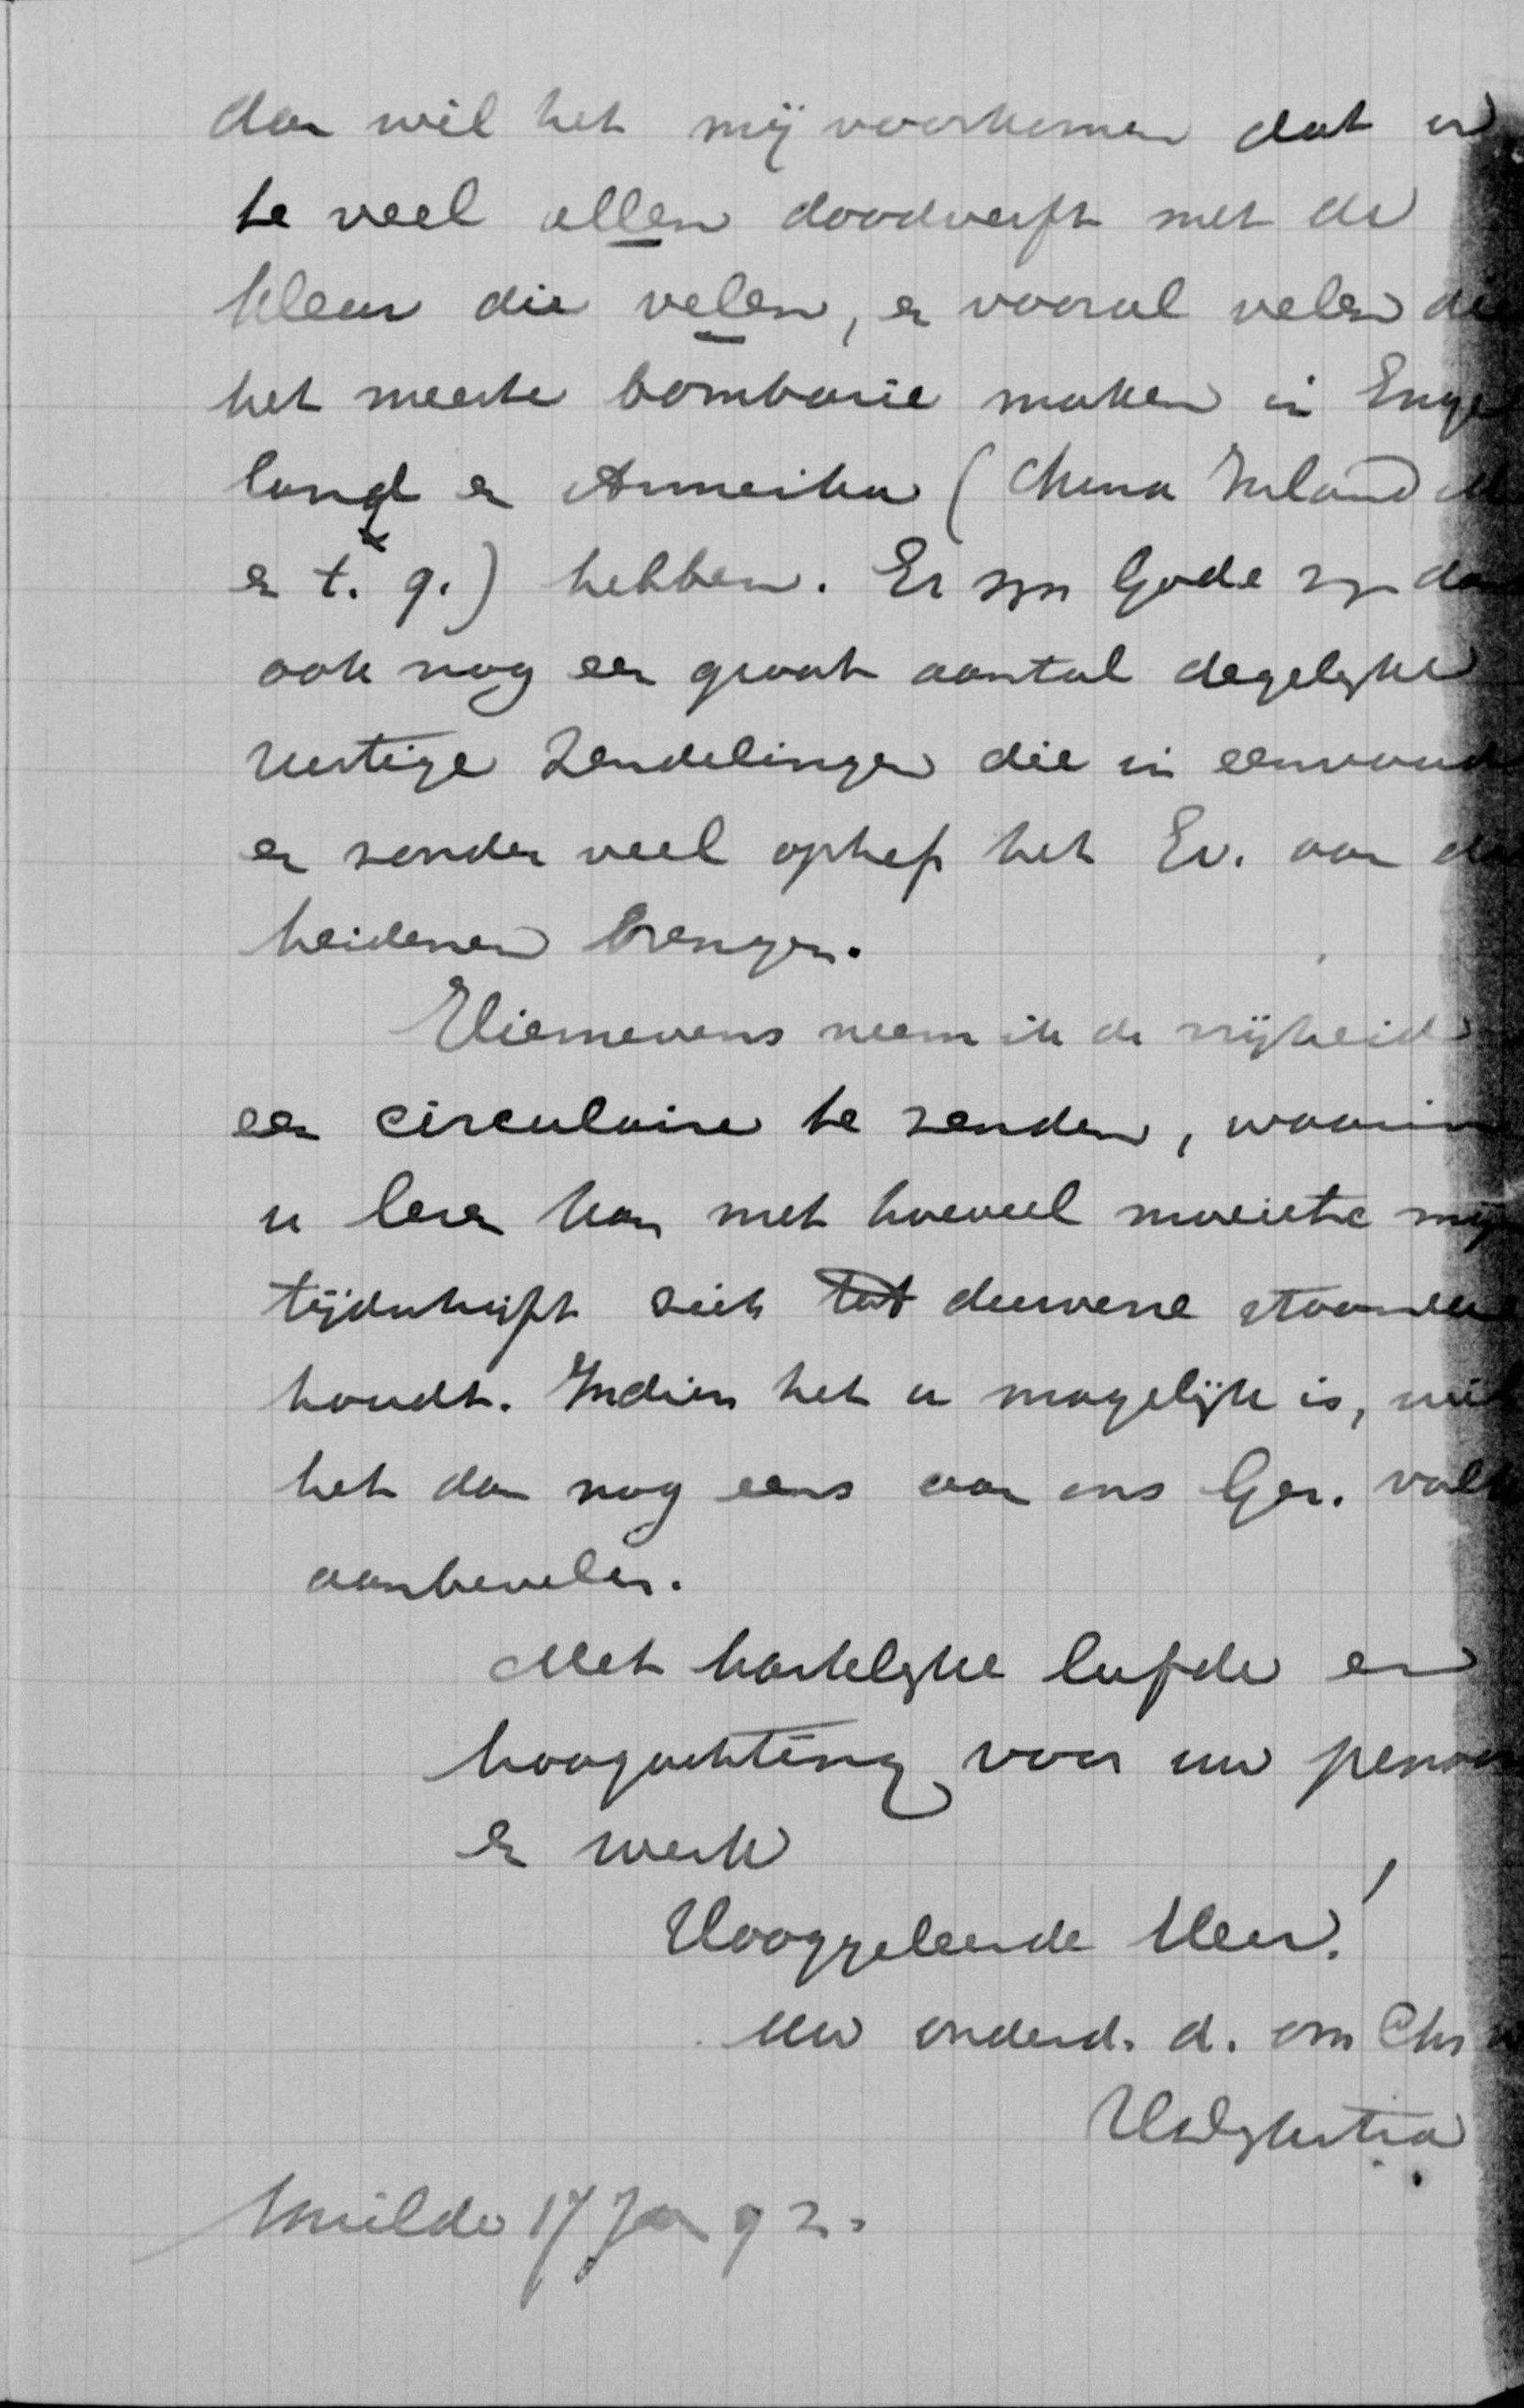 dan wil het mij voorkomen dat u
te veel allen doodverft met de
kleur die velen, en vooral velen die
het meeste bombarie maken in Enge
land en Amerika (China Inland M
en t. q.) hebben. Er zijn Gode zij dank
ook nog een groot aantal degelijke
rustige zendelingen die in eenvoud
en zonder veel ophef het Ev. aan de
heidenen brengen.
Hiernevens neem ik de vrijheid
een circulaire te zenden, waarin
u lezen kan met hoeveel moeite mijn
tijdschrift zich tot deswene staande
houdt. Indien het u mogelijk is, wil
het dan nog eens aan ons Ger. volk
aanbevelen.
Met hartelijke liefde en
hoogachting voor uw persoon
en werk
Hooggeleerde Heer!
Uw onderd. d. om Chr
Dijkstra
Smilde 17 Jan 92.